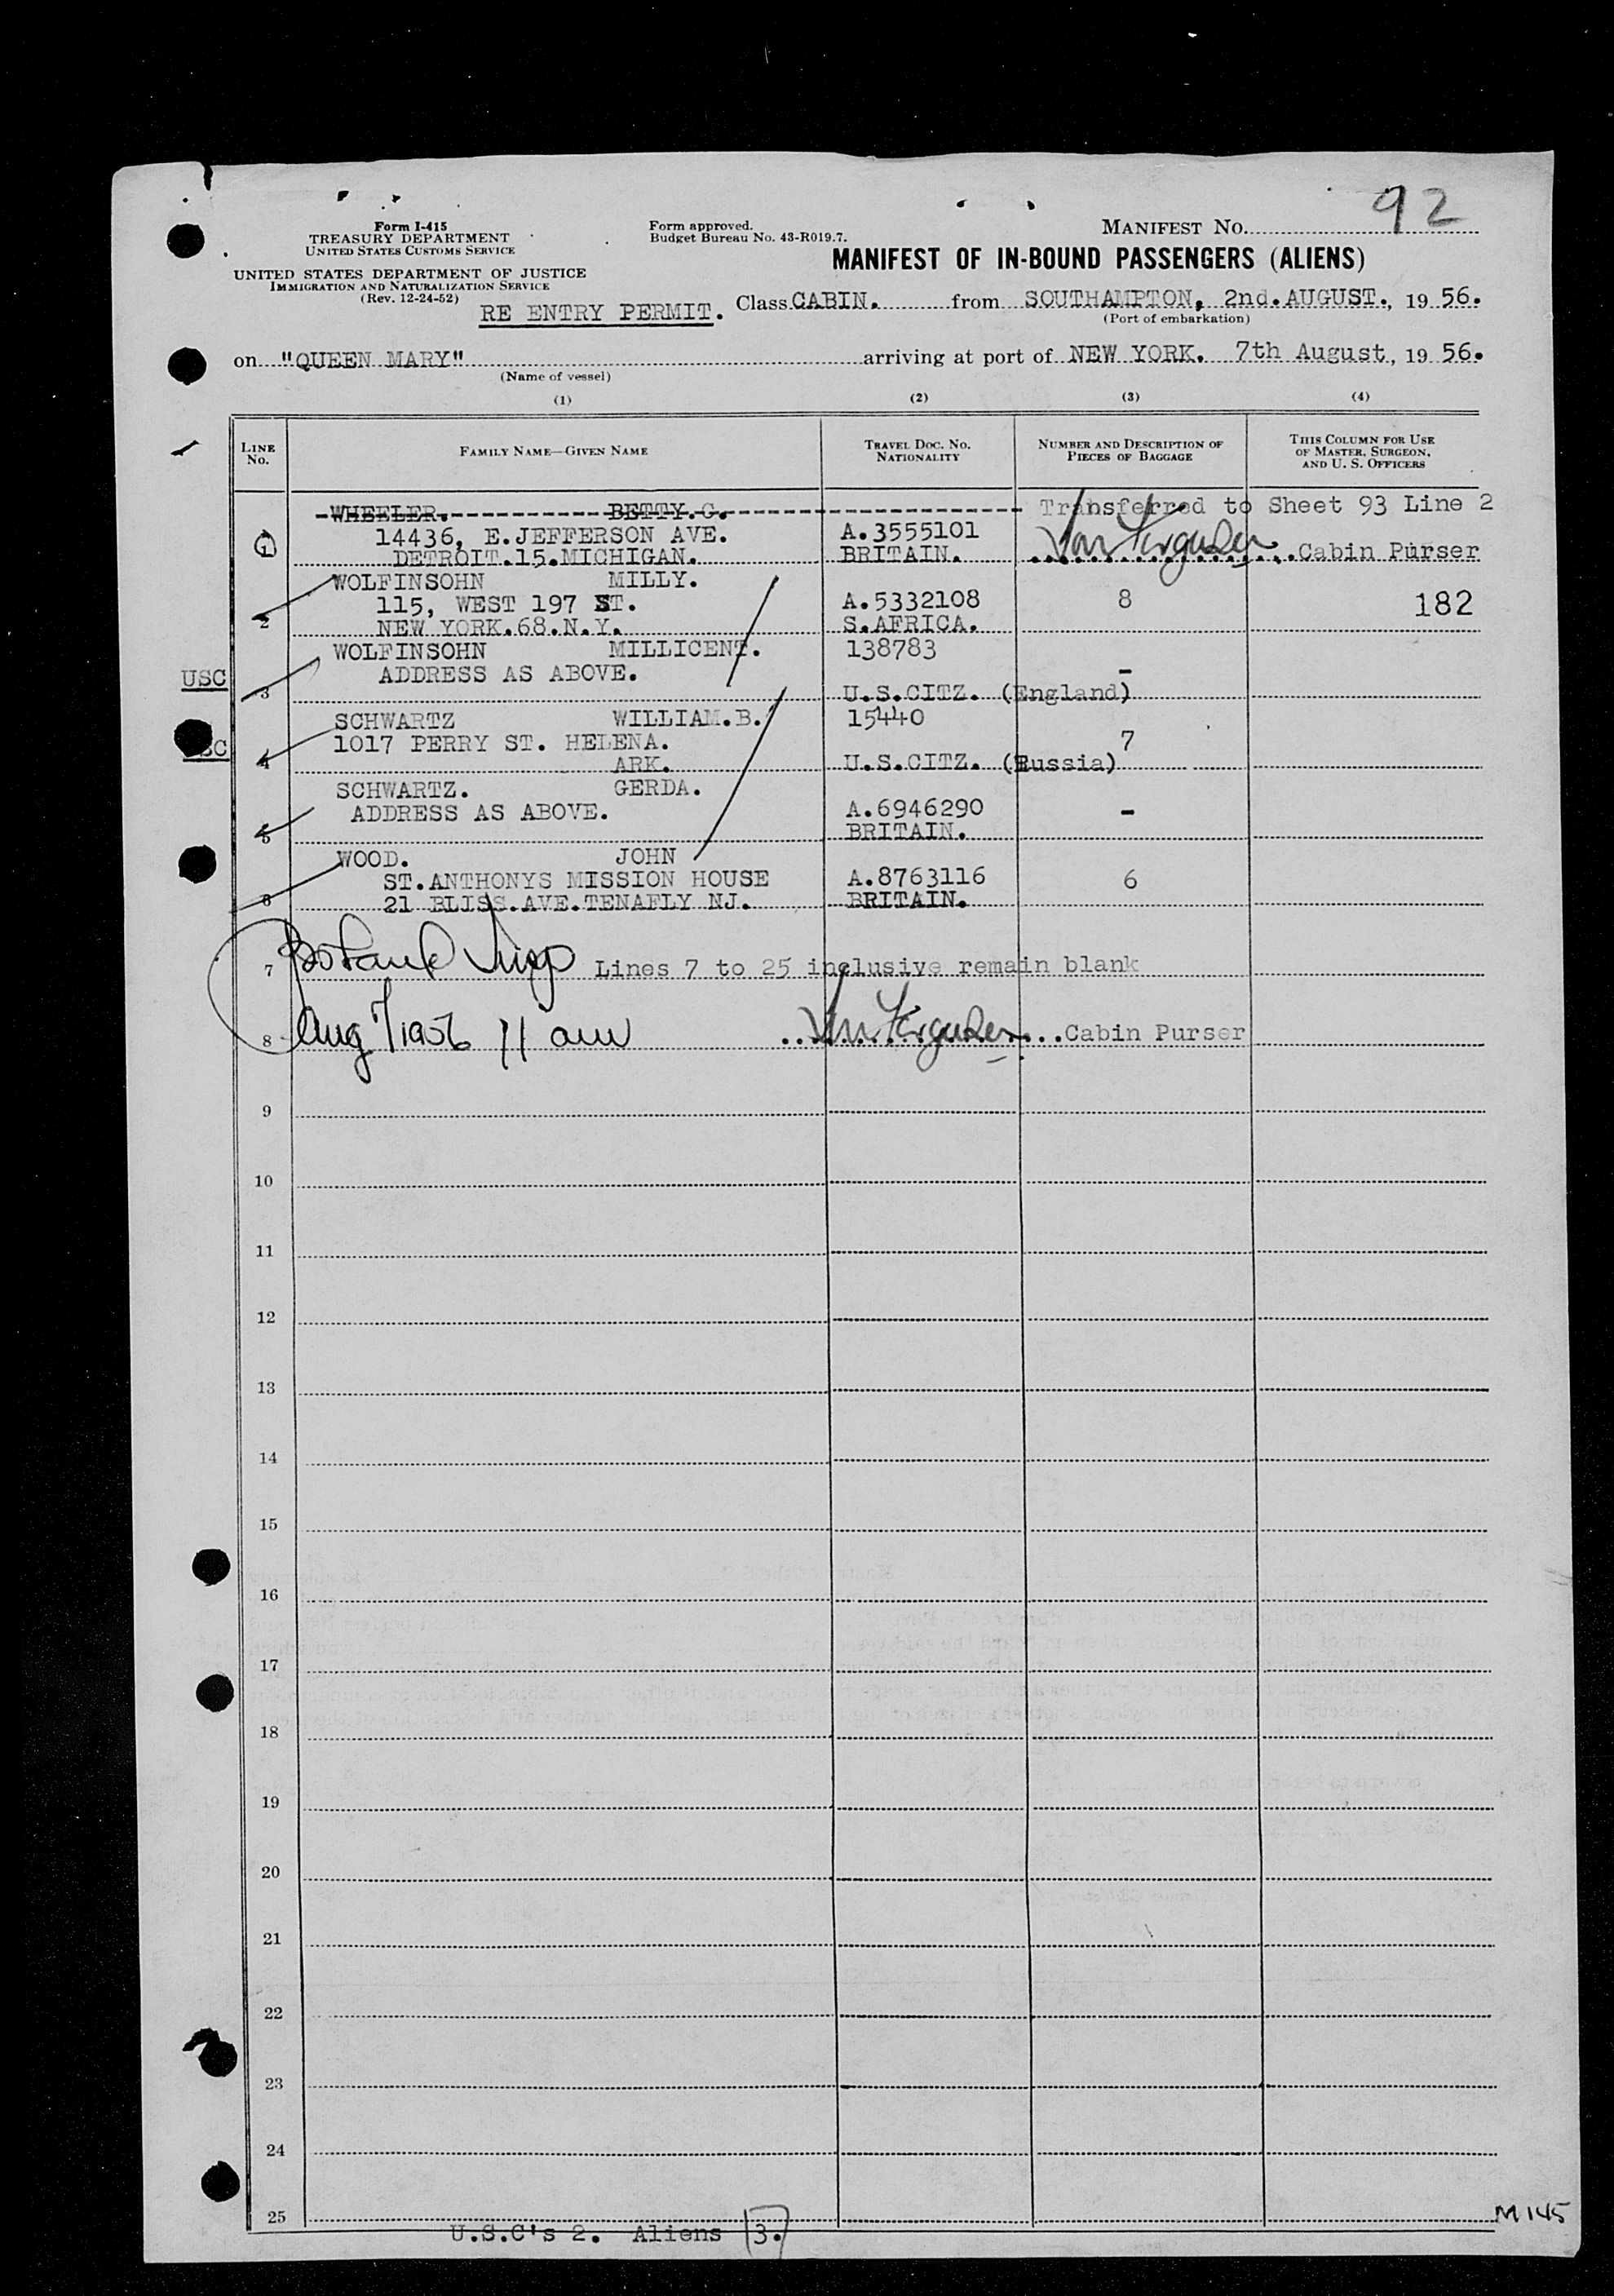 92
Form I-415
TREASURY DEPARTMENT
UNITED STATES CUSTOMS SERVICE
UNITED STATES DEPARTMENT OF JUSTICE
IMMIGRATION AND NATURALIZATION SERVICE
(Rev. 12-24-52)
Form approved.
Budget Bureau No. 43-R019.7.
MANIFEST NO.
MANIFEST OF IN-BOUND PASSENGERS (ALIENS)
RE ENTRY PERMIT. Class CABIN. from SOUTHAMPTON, 2nd. AUGUST., 19 56.
(Port of embarkation)
on "QUEEN MARY" arriving at port of NEW YORK. 7th August, 19 56.
(Name of vessel)
(1) (2) (3) (4)
LINE NO. FAMILY NAME—GIVEN NAME TRAVEL DOC. NO. NATIONALITY NUMBER AND DESCRIPTION OF PIECES OF BAGGAGE THIS COLUMN FOR USE OF MASTER, SURGEON, AND U. S. OFFICERS
WHEELER. BETTY.G. Transferred to Sheet 93 Line 2
1 14436, E.JEFFERSON AVE. A.3555101
DETROIT.15.MICHIGAN. BRITAIN. Cabin Purser
WOLFINSOHN MILLY.
2 115, WEST 197 ST. A.5332108 8 182
NEW YORK.68.N.Y. S.AFRICA.
WOLFINSOHN MILLICENT. 138783
USC 3 ADDRESS AS ABOVE. -
U.S.CITZ. (England)
SCHWARTZ WILLIAM.B. 15440
USC 4 1017 PERRY ST. HELENA. 7
ARK. U.S.CITZ. (Russia)
SCHWARTZ. GERDA.
5 ADDRESS AS ABOVE. A.6946290 -
BRITAIN.
WOOD. JOHN
6 ST.ANTHONYS MISSION HOUSE A.8763116 6
21 BLISS.AVE.TENAFLY NJ. BRITAIN.
7 Lines 7 to 25 inclusive remain blank
8 Aug 7/1956 11 am Cabin Purser
9
10
11
12
13
14
15
16
17
18
19
20
21
22
23
24
25
U.S.C's 2. Aliens 3.
M145